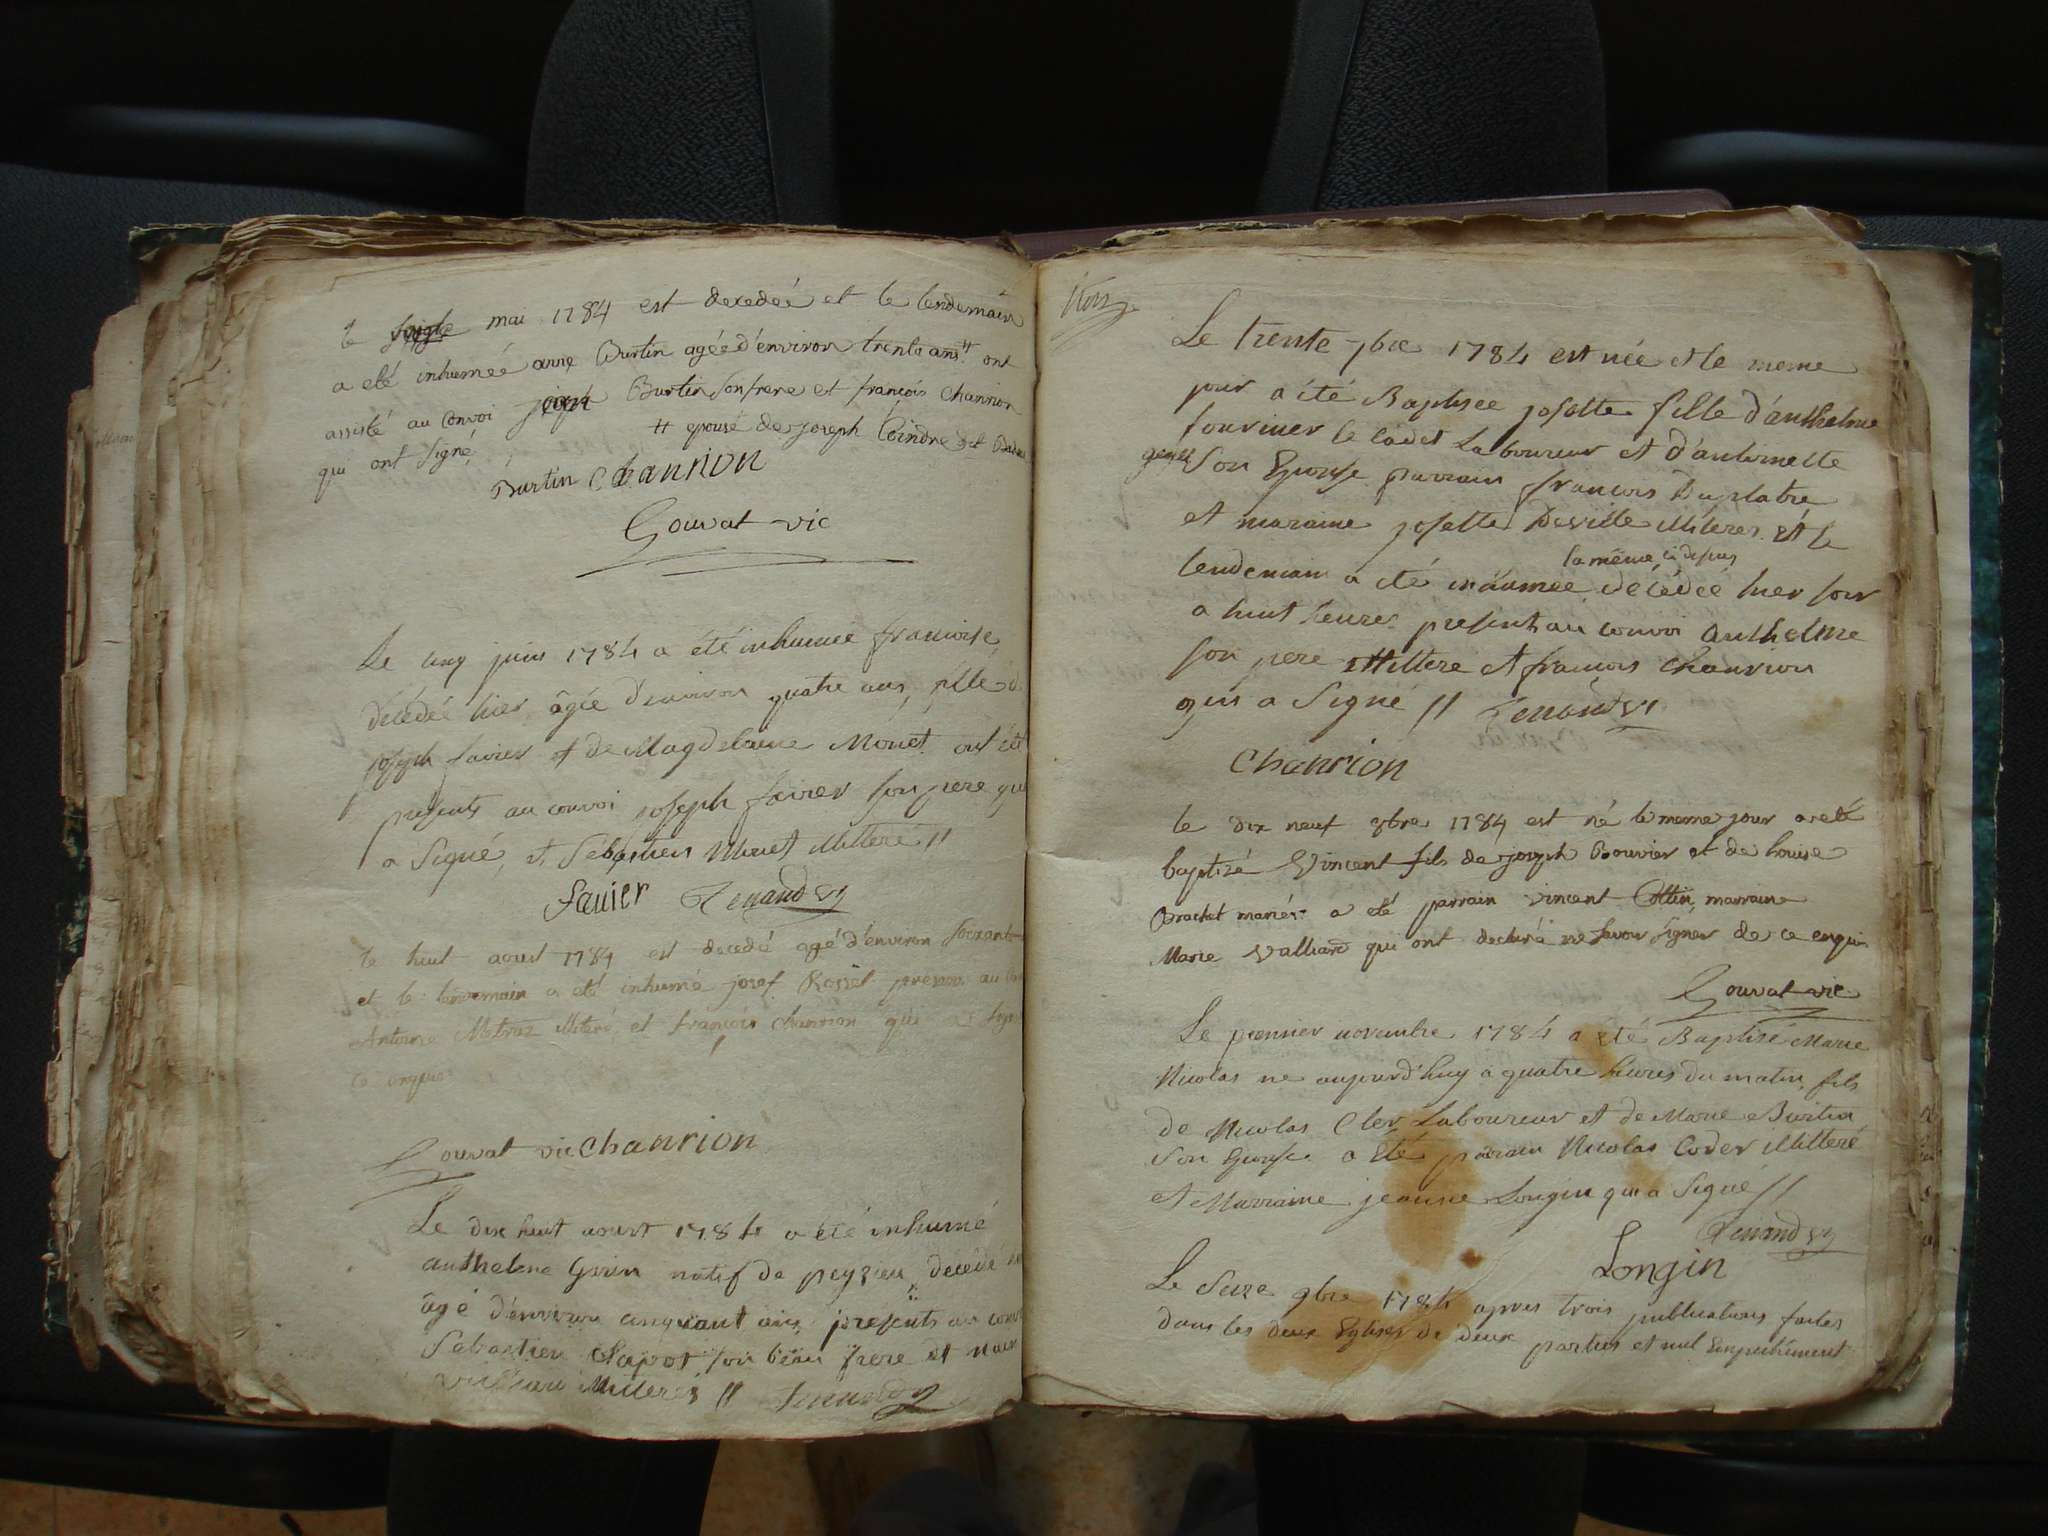 le mai 1784 est decedeé et le lendemain
a eté inhumeé anne Burtin agée d'environ trente ans # ont
assisté au Convoi joseph Burtin son frere et françois Chanrion
qui ont signé, # epouse de joseph Coindre dit
Burtin Chanrion
Gouvat vic
Le cinq juin 1784 a été inhumée francoise
décédée hier âgée d'environ quatre ans, fille d
joseph favier et de Magdelaine Monet ont été
présents au convoi joseph favier son pere qui
a signé, et Sébastien Millere //
Favier Tenand vy
le huit aoust 1784 est decedé agé d'environ soixante
et le lendemain a eté inhumé josef Rosset presens au
Antoine Métraz illiteré et françois chanrion qui a
ce enquis
Gouvat vic Chanrion
Le dix huit aoust 1784 a été inhumé
anthelme Guin natif de peyzieu, décédé
âgé d'environ cinquant ans, presents au conv
Sébastien son beau frere et
Milleres // Tenand vy
Le trente 7bre 1784 est née et le meme
jour a été Baptisée josette fille d'anthelme
fournier le cadet Laboureur et d'antoinette
son Epouse parrain francois Duplatre
et maraine josette Deville illiteres. Et le
la même ci dessus
lendemain a été inhumée, décédée hier soir
a huit heures presents au convoi Anthelme
son pere illiteré et francois Chanrion
qui a Signé // Tenand vy
Chanrion
le dix neuf 8bre 1784 est né le meme jour a eté
baptisé Vincent fils de joseph Bouvier et de Louise
Brachet mariés. a eté parrain vincent Cottin, marraine
Marie Valliard qui ont declaré ne savoir signer de ce enquis
Gouvat vic
Le premier novembre 1784 a été Baptisé Marie
Nicolas né aujourd'huy a quatre heures du matin, fils
de Nicolas Cler Laboureur et de Marie Burtin
son Epouse. a été parrain Nicolas Coder illiteré
et Marraine jeanne Longin qui a signé //
Tenand vy
Longin
Le seize 9bre 1784 apres trois publications faites
dans les deux Eglises de deux parties et nul Empechement